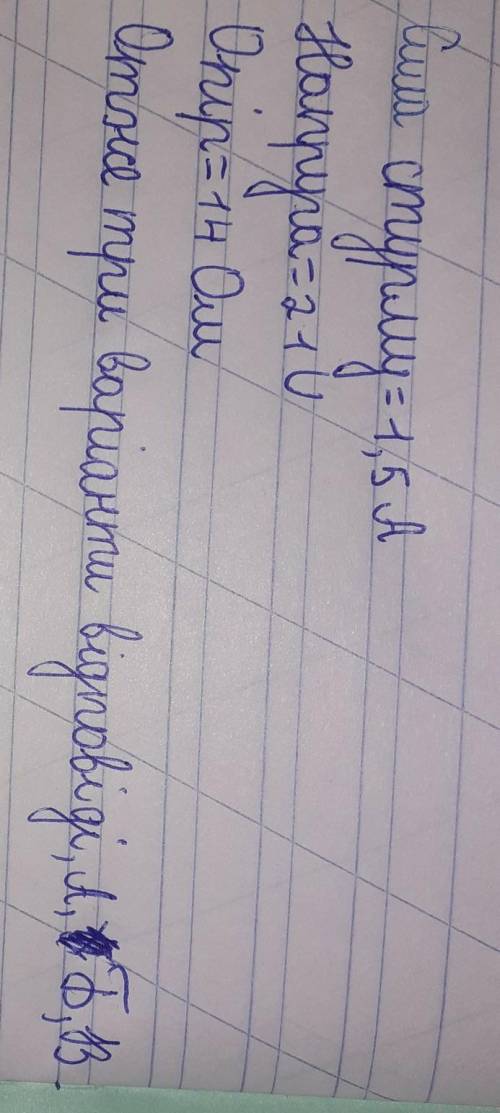 Сила струму = 1,5 А
Напруга = 21 V
Опір = 14 Ом
Отже три варіанти відповіді, А, Б, В